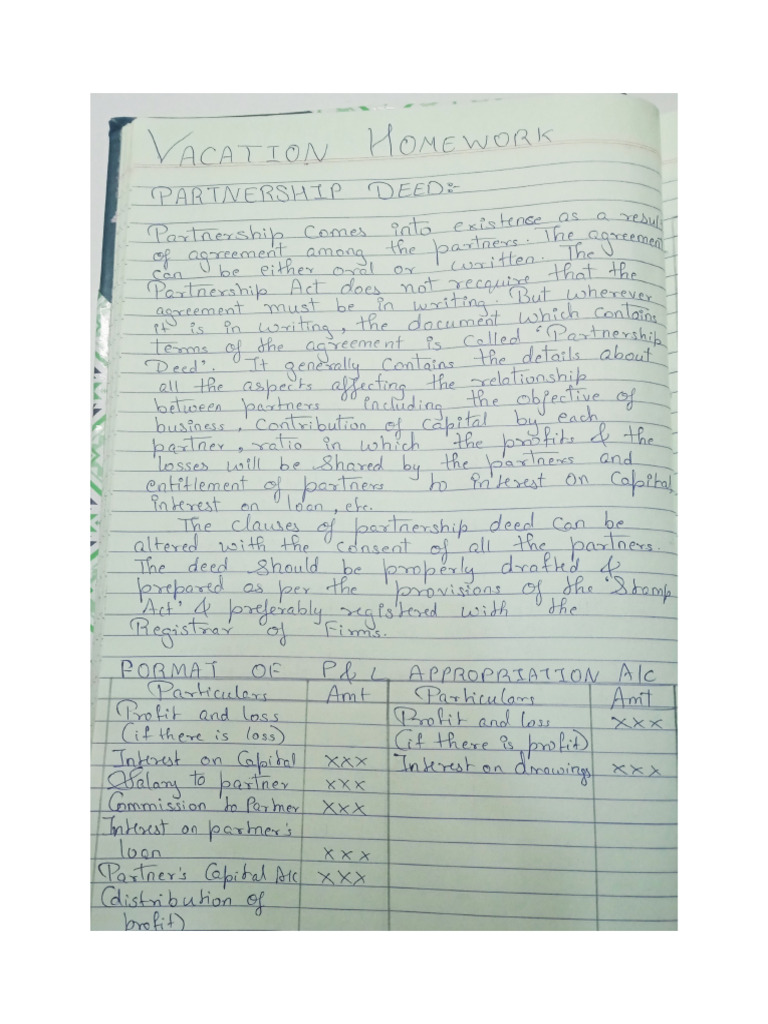 VACATION HOMEWORK
PARTNERSHIP DEED:-
Partnership comes into existence as a result
of agreement among the partners. The agreement
can be either oral or written. The
Partnership Act does not recquire that the
agreement must be in writing. But wherever
it is in writing, the document which contains
terms of the agreement is called 'Partnership
Deed'. It generally contains the details about
all the aspects affecting the relationship
between partners including the objective of
business, contribution of capital by each
partner, ratio in which the profits & the
losses will be shared by the partners and
entitlement of partners to interest on capital,
interest on loan, etc.
The clauses of partnership deed can be
altered with the consent of all the partners.
The deed should be properly drafted &
prepared as per the provisions of the 'Stamp
Act' & preferably registered with the
Registrar of Firms.
FORMAT OF P & L APPROPRIATION A/c
Particulars Amt Particulars Amt
Profit and loss Profit and loss xxx
(if there is loss) (if there is profit)
Interest on Capital xxx Interest on drawings xxx
Salary to partner xxx
Commission to Partner xxx
Interest on partner's
loan xxx
Partner's Capital A/c xxx
(distribution of
profit)